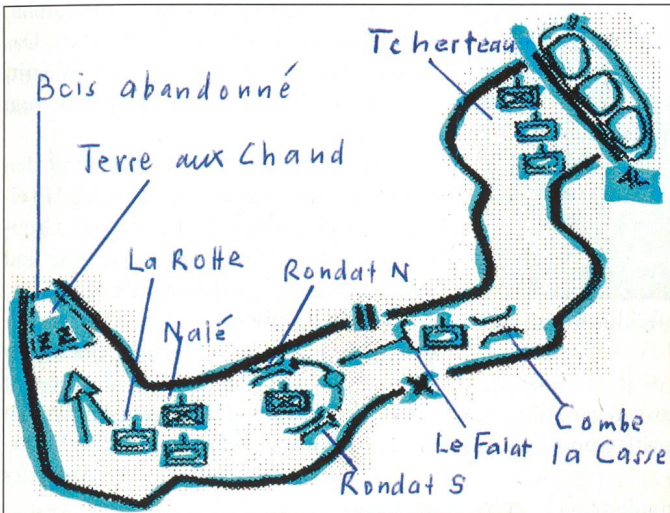 Tcherteau
Bois abandonné
Terre aux Chand
La Rotte
Rondat N
Nalé
Combe
la Casse
Le Faiat
Rondat S